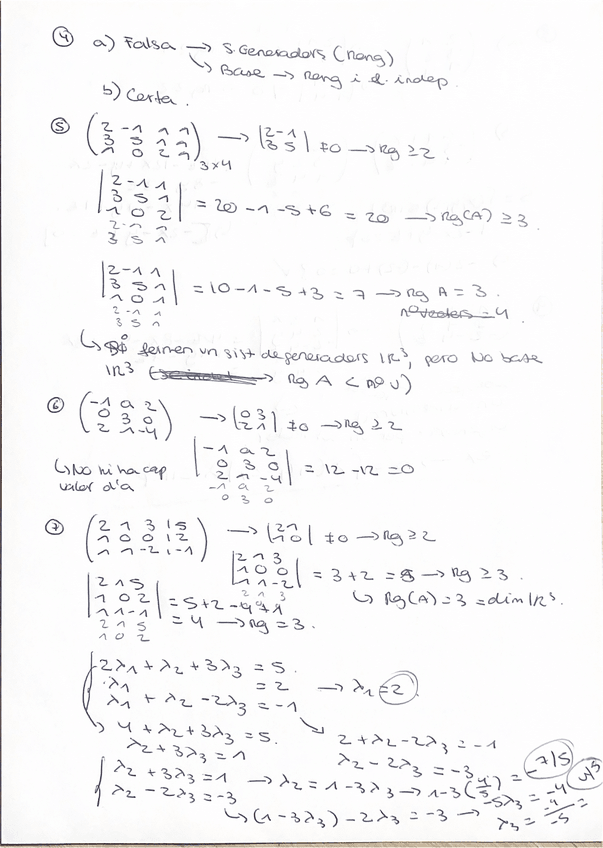 ④ a) Falsa → S. Generadors (Rang)
↳ Base → Rang i d. indep.
b) Certa.
⑤ ( 2 -1 1 1
3 5 1 1
1 0 2 1 ) 3x4 → |2 -1
3 5| ≠0 → Rg ≥ 2.
|2 -1 1
3 5 1
1 0 2|
2 -1 1
3 5 1
= 20 - 1 - 5 + 6 = 20 → Rg(A) ≥ 3.
|2 -1 1
3 5 1
1 0 1|
2 -1 1
3 5 1
= 10 - 1 - 5 + 3 = 7 → Rg A = 3.
nº vectors = 4
↳ formen un sist de generadors IR³, pero No base
IR³ ( → Rg A < nº v)
⑥ ( -1 a 2
0 3 0
2 1 -4 ) → |0 3
2 1| ≠0 → Rg ≥ 2
↳ No hi ha cap
valor d'a
|-1 a 2
0 3 0
2 1 -4|
-1 a 2
0 3 0
= 12 - 12 = 0
⑦ ( 2 1 3 | 5
1 0 0 | 2
1 1 -2 | -1 ) → |2 1
1 0| ≠0 → Rg ≥ 2
|2 1 3
1 0 0
1 1 -2|
2 1 3
1 0 0
= 3 + 2 = 5 → Rg ≥ 3.
↳ Rg(A) = 3 = dim IR³.
|2 1 5
1 0 2
1 1 -1|
2 1 5
1 0 2
= 5 + 2 - 4 + 1
= 4 → Rg = 3.
2λ1 + λ2 + 3λ3 = 5.
λ1 = 2 → λ1 = 2.
λ1 + λ2 - 2λ3 = -1
4 + λ2 + 3λ3 = 5.
λ2 + 3λ3 = 1
2 + λ2 - 2λ3 = -1
λ2 - 2λ3 = -3
λ2 + 3λ3 = 1 → λ2 = 1 - 3λ3 → 1 - 3(4/5) = -7/5
λ2 - 2λ3 = -3
↳ (1 - 3λ3) - 2λ3 = -3 → -5λ3 = -4
λ3 = -4/-5 =